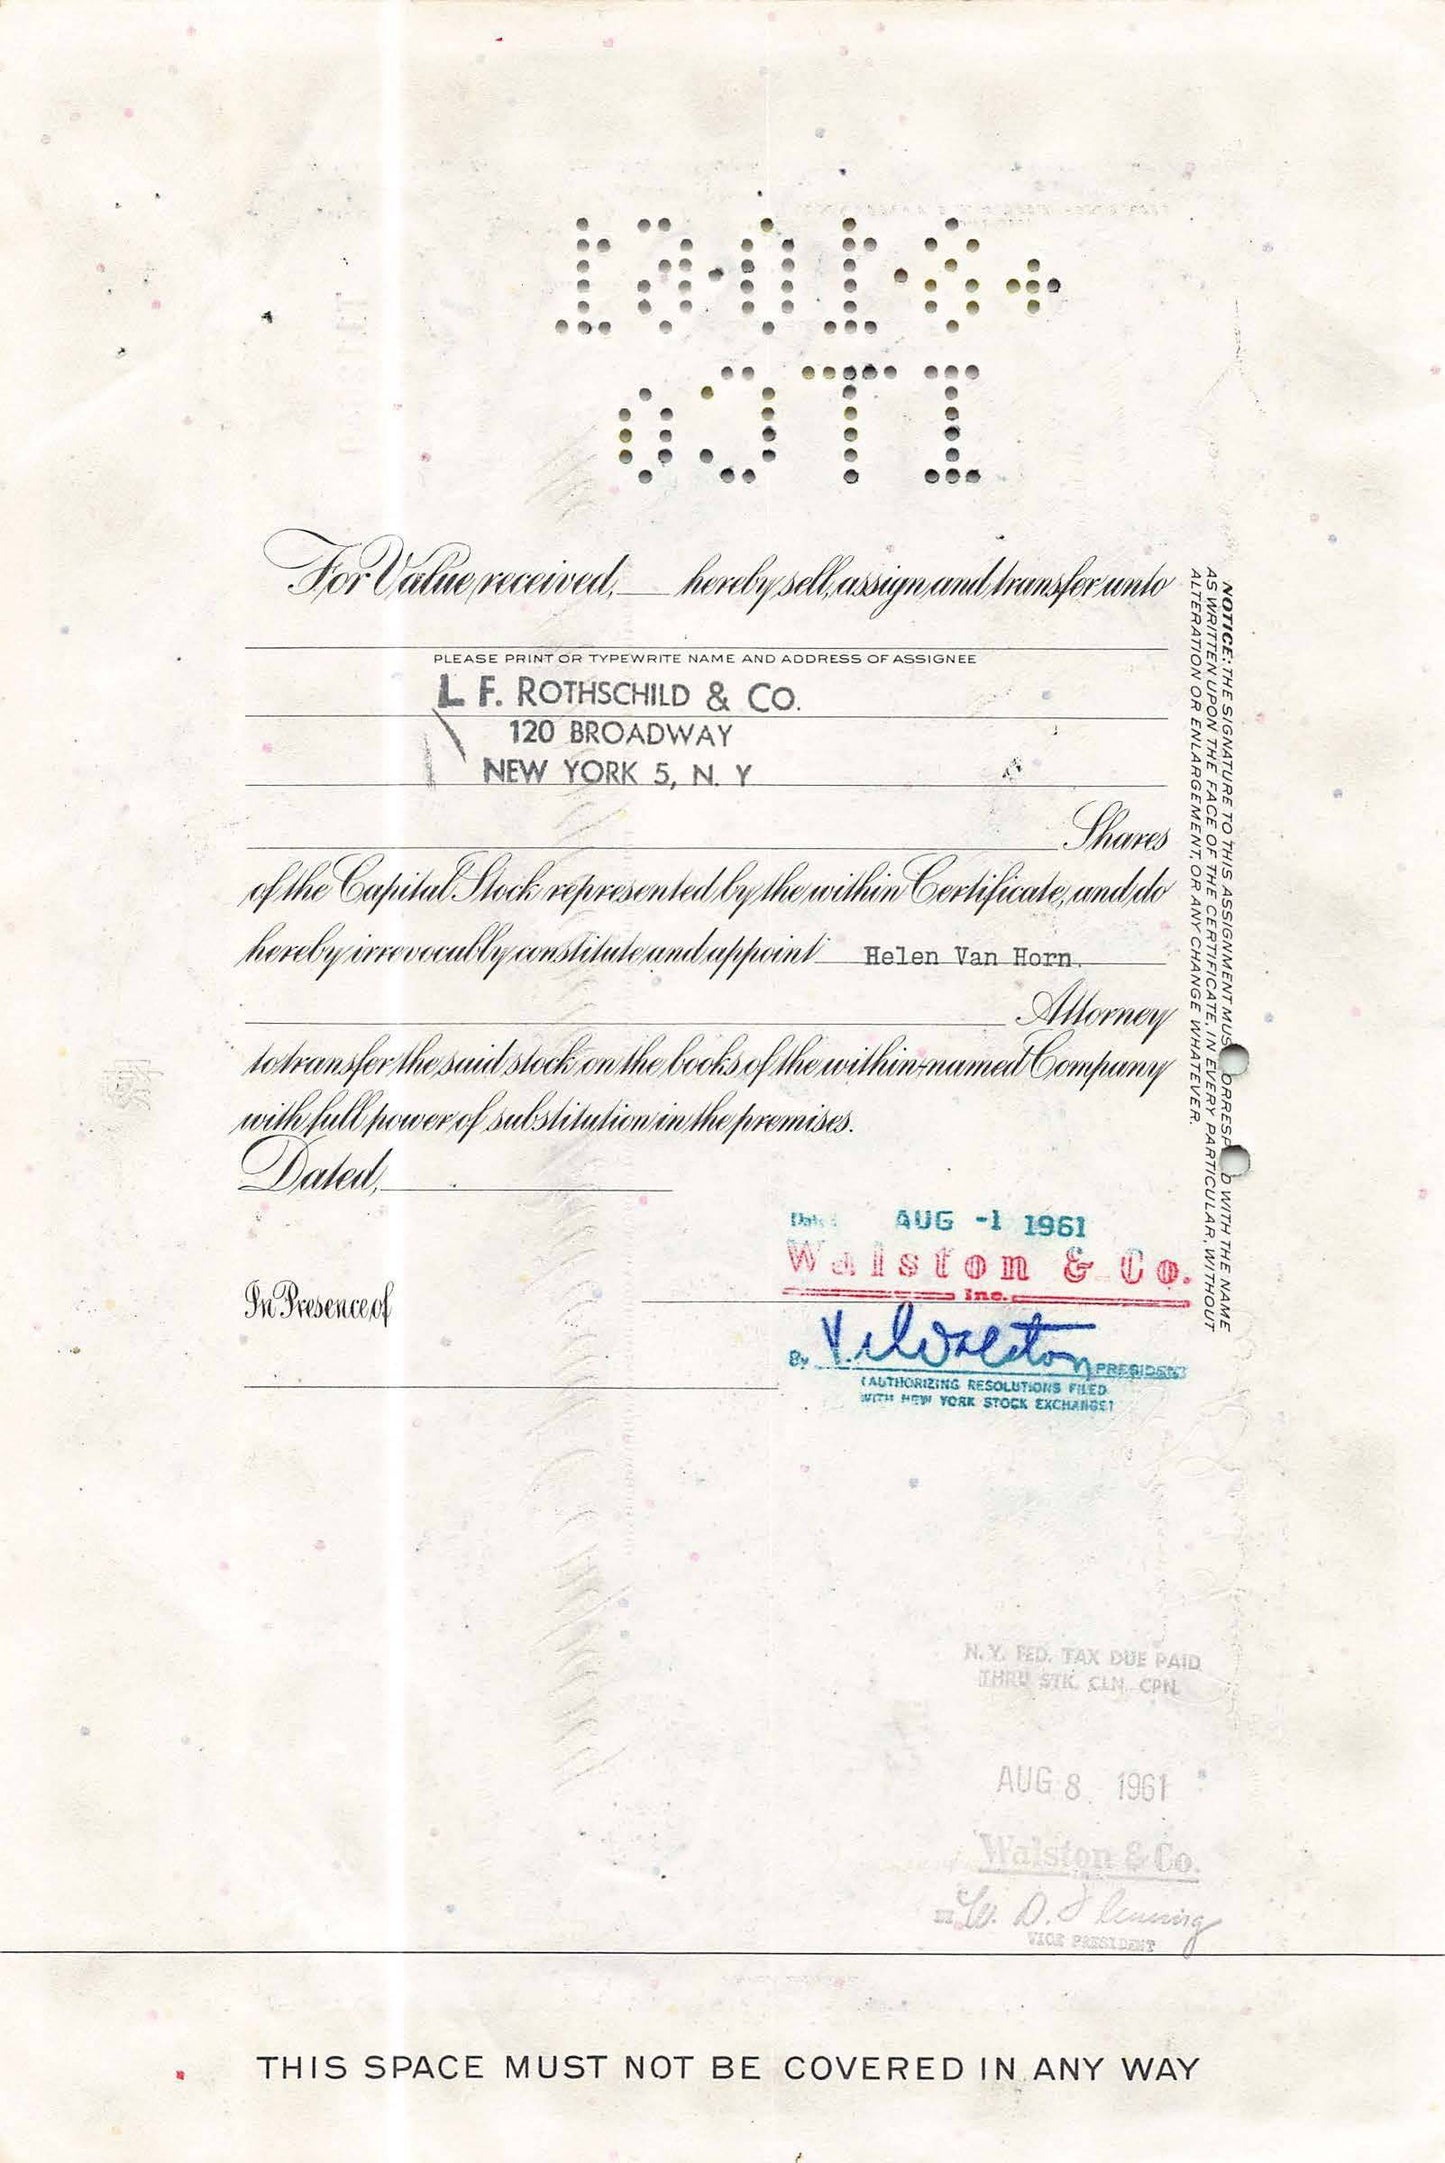 +8·10·61
ITCo
For Value received, hereby sell, assign and transfer unto
PLEASE PRINT OR TYPEWRITE NAME AND ADDRESS OF ASSIGNEE
L F. ROTHSCHILD & CO.
120 BROADWAY
NEW YORK 5, N. Y
Shares
of the Capital Stock represented by the within Certificate, and do
hereby irrevocably constitute and appoint Helen Van Horn.
Attorney
to transfer the said stock on the books of the within-named Company
with full power of substitution in the premises.
Dated,
NOTICE: THE SIGNATURE TO THIS ASSIGNMENT MUS ORRESP D WITH THE NAME
AS WRITTEN UPON THE FACE OF THE CERTIFICATE, IN EVERY PARTICULAR, WITHOUT
ALTERATION OR ENLARGEMENT, OR ANY CHANGE WHATEVER.
Date: AUG -1 1961
Walston & Co.
Inc.
In Presence of
By V. C. Walston PRESIDENT
(AUTHORIZING RESOLUTIONS FILED
WITH NEW YORK STOCK EXCHANGE)
N. Y. FED. TAX DUE PAID
THRU STK. CLN. CPN.
AUG 8 1961
Walston & Co.
W. D. Fleming
VICE PRESIDENT
THIS SPACE MUST NOT BE COVERED IN ANY WAY